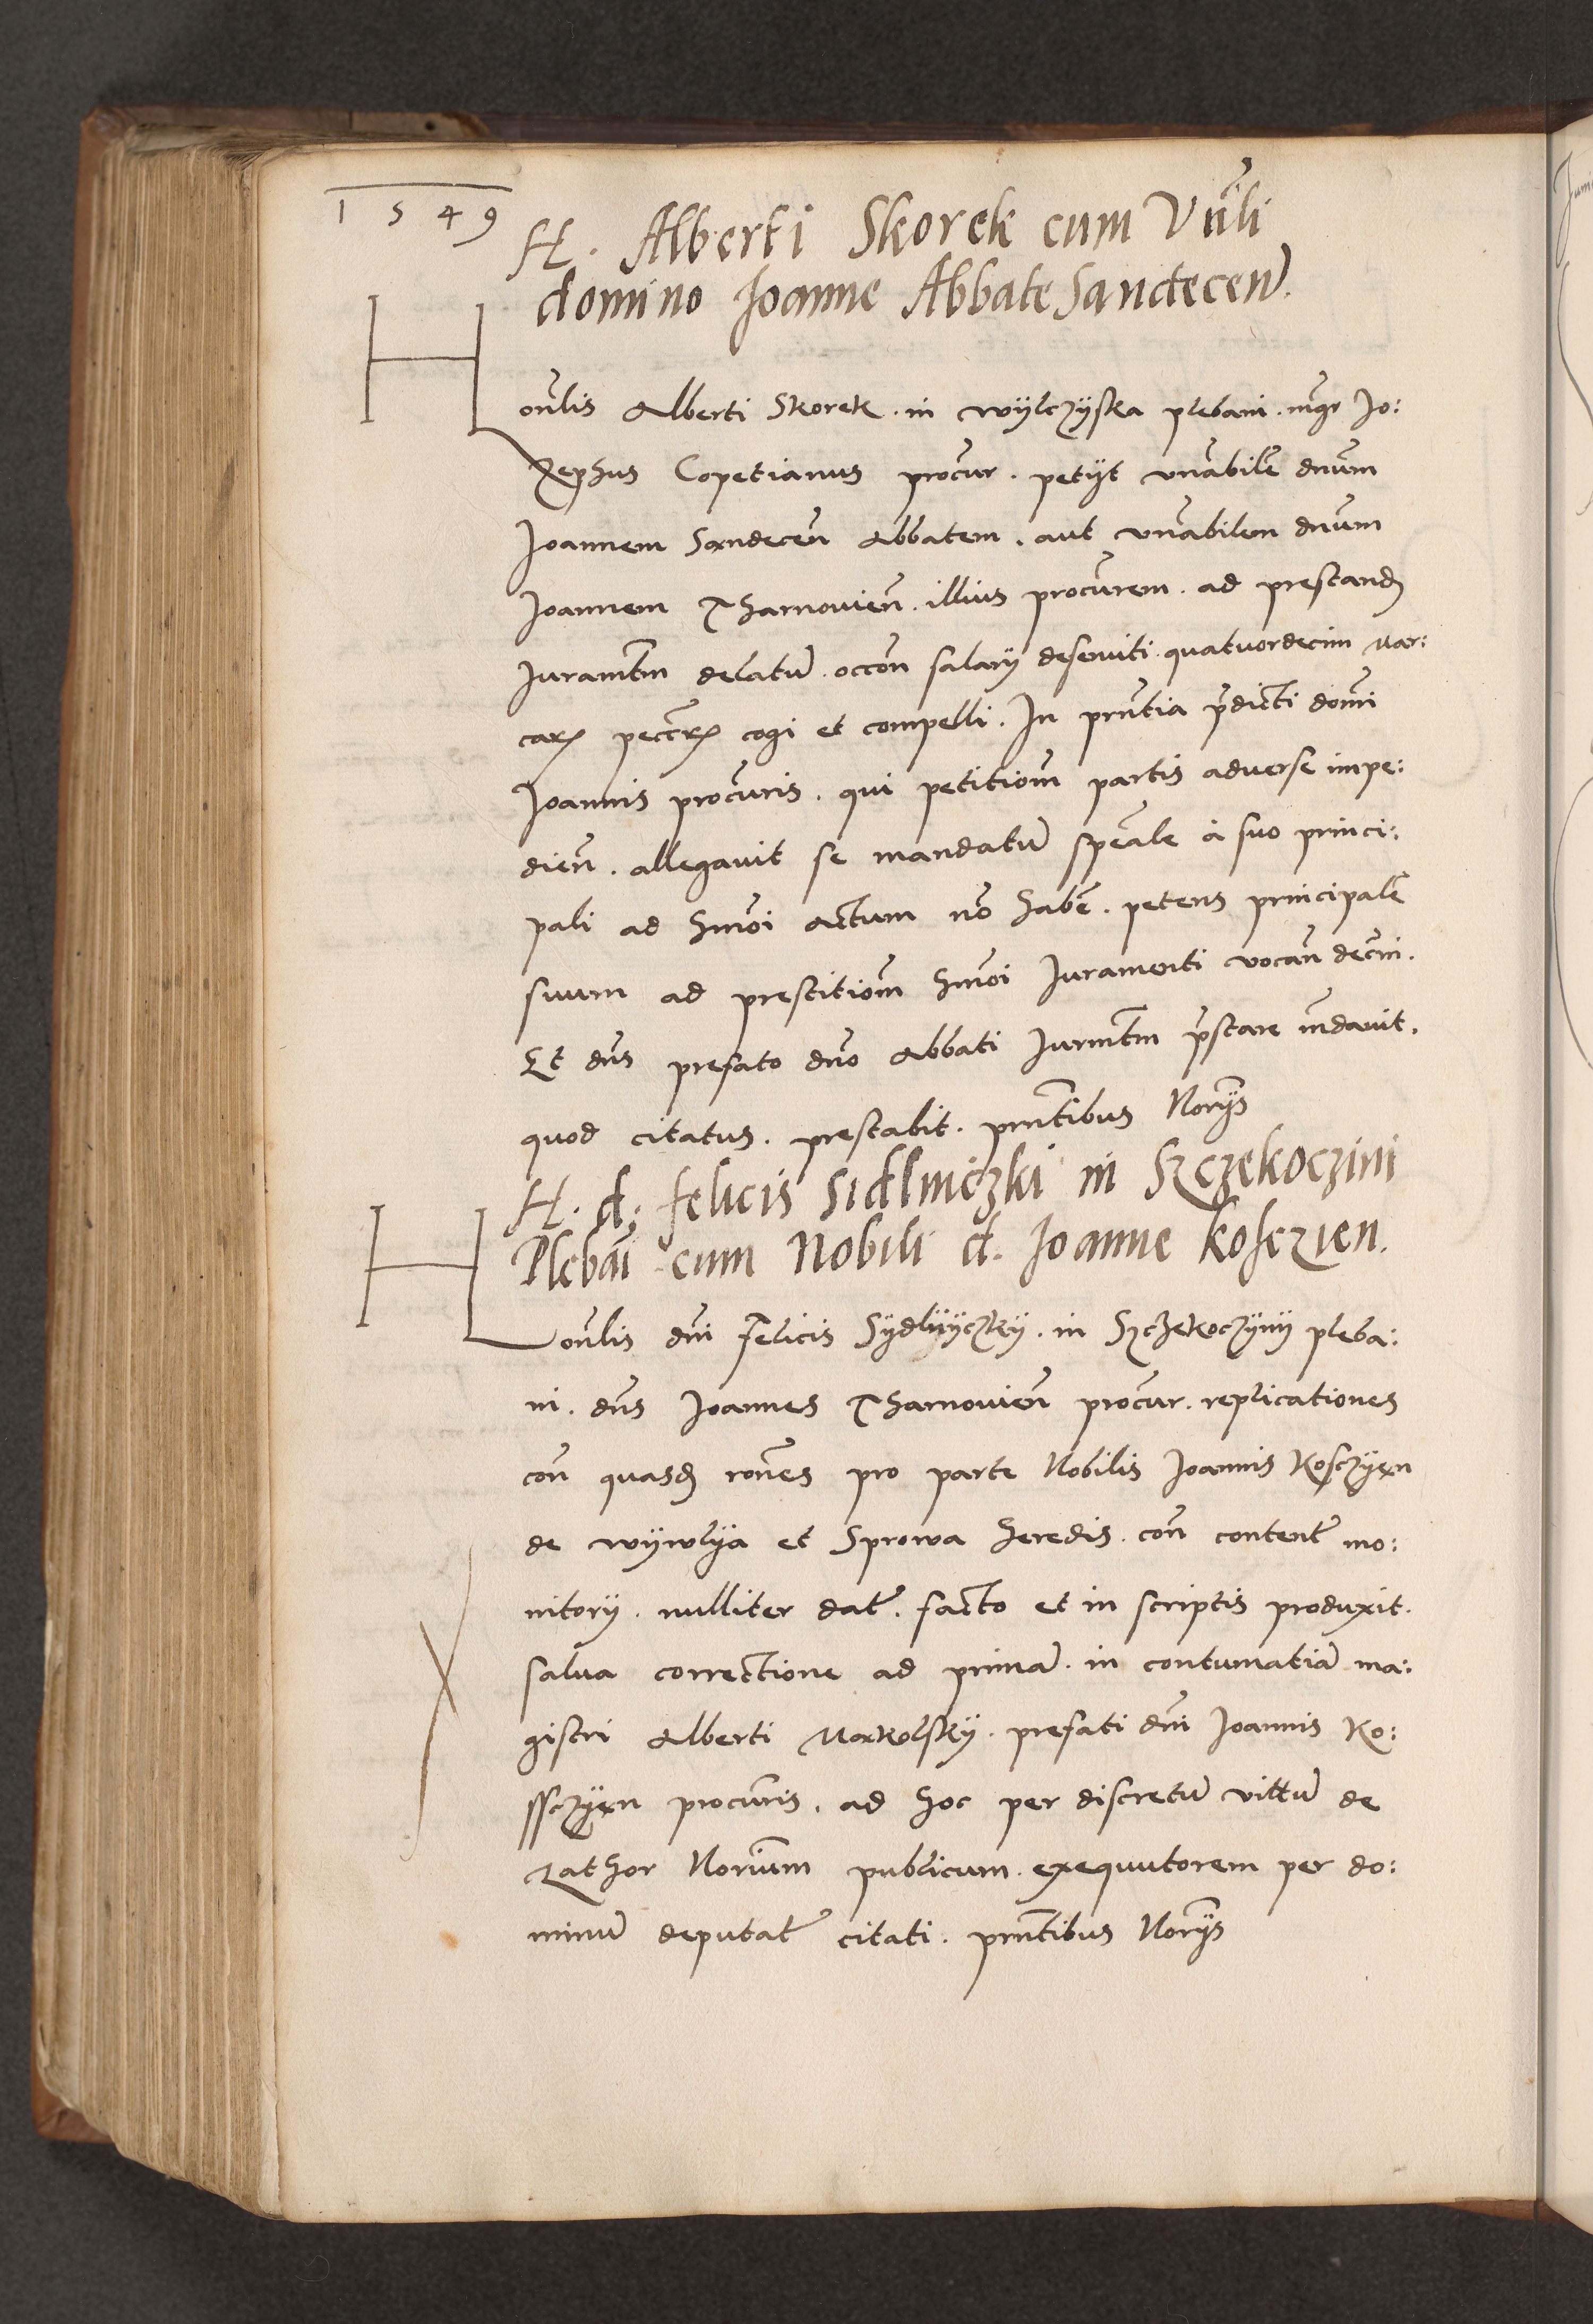 1549
H. Alberti Skorek cum Vnli
domino Joanne Abbate Sandecen.
Honlis Alberti Skorek. in Wylczyska plebani. mgr Jo:
zephus Copetianus procur. petyt vnabile dnum
Joannem Sandecen Abbatem. aut vnabilem dnum
Joannem Tharnovien. illius procurem. ad prestand
Juramtm delatu. occon salary deserviti quatuordecim Mar:
car pec cogi et compelli. In prntia pdicti domi
Joannis procuris. qui petitiom partis adverse impe:
dien. allegavit se mandatu speale à suo princi:
pali ad hmoi Actum no habe. petens principale
suum ad prestitiom hmoi Juramenti vocan decni.
Et dns prefato dno Abbati Jurmtm pstare mdavit.
quod citatus. prestabit. prntibus Norys
H. d; felicis Sidlniczki in Szczekoczini
Plebai cum Nobili d. Joanne Kosczien.
Honlis dni Felicis Sydlnyczky. in Szczekoczyny pleba:
ni. dns Joannes Tharnovien procur. replicationes
con quasd rones pro parte Nobilis Joannis Kosczyen
de Wywlya et Sprowa heredis. con content mo:
nitory. nulliter dat. facto et in scriptis produxit.
salva correctione ad prima. in contumatia ma:
gistri Alberti Markolsky. prefati dni Joannis Ko:
ssczyen procuris. ad hoc per discretu vittu de
Zathor Norium publicum. exequutorem per do:
minu deputat citati. prntibus Norys